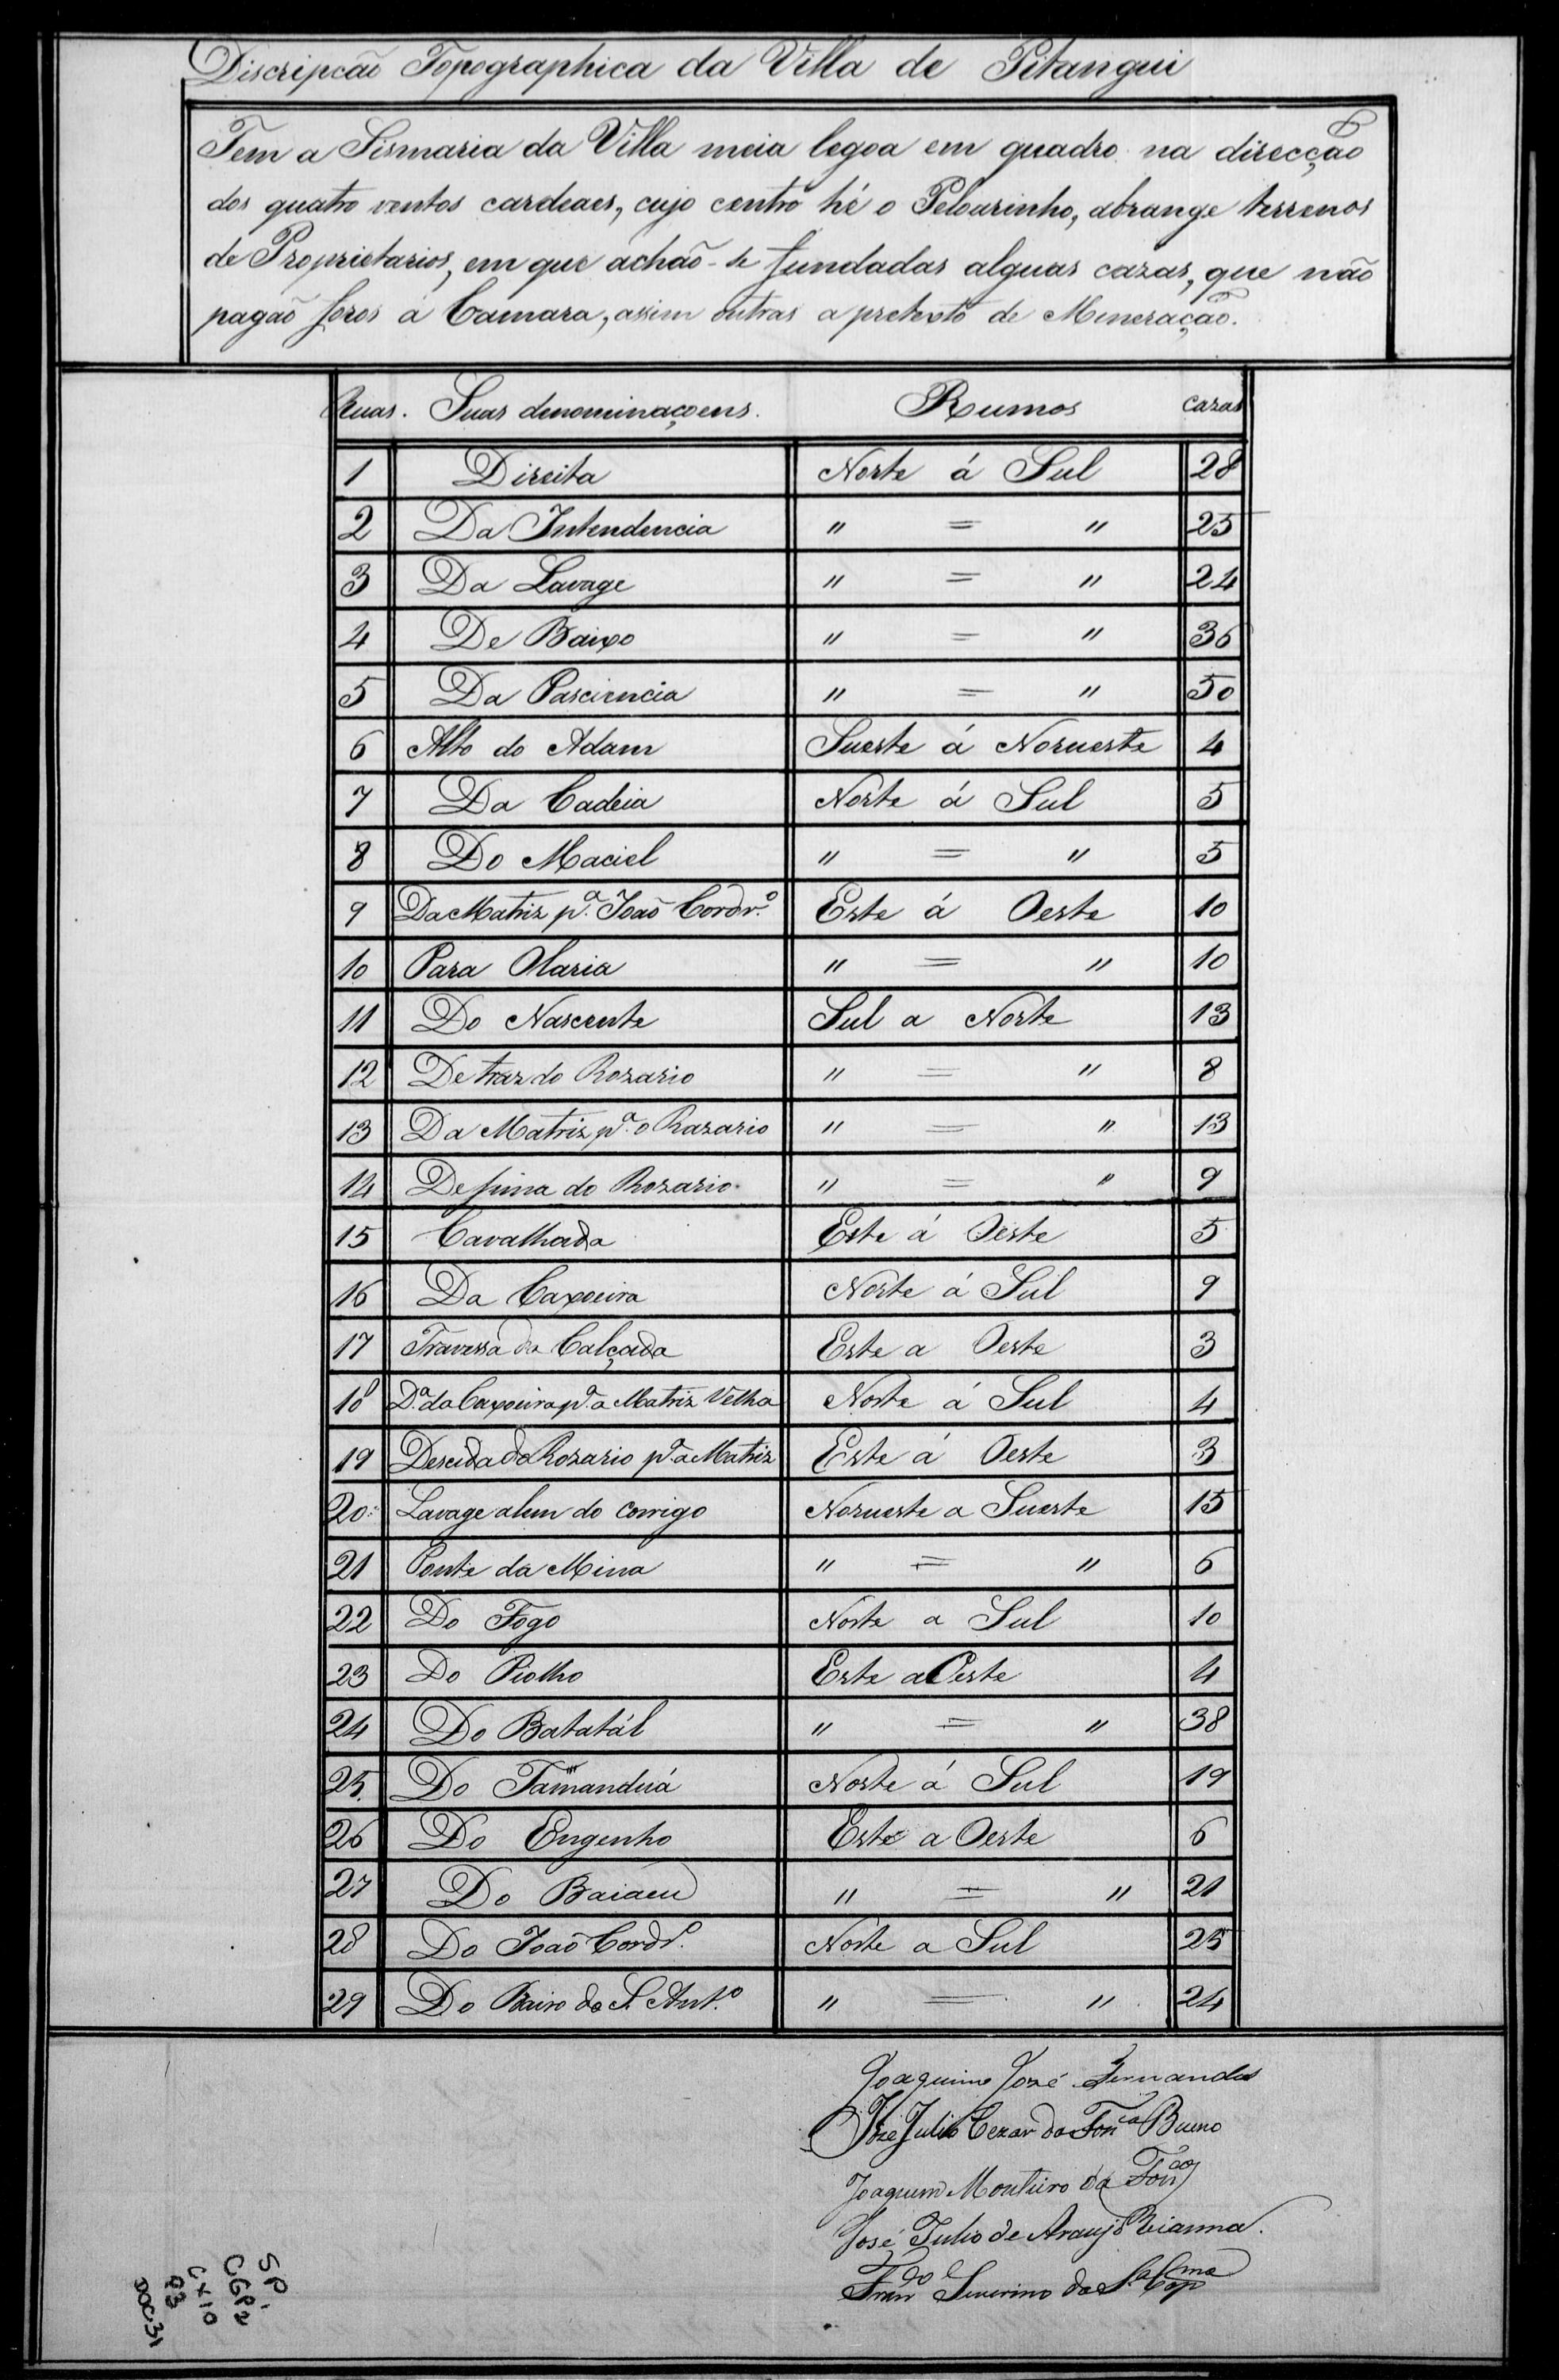 Discripcaõ Topographica da Villa de Pitangui
6
Tem a Sismaria da Villa meia legoa em quadro na direcçaõ
dos quatro ventos cardeaes, cujo centro hé o Pelourinho, abrange terrenos
de Proprietarios, em que achaõ-se fundadas alguas cazas, que não
pagaõ foros a Camara, assim outras a pretexto de Mineraçaõ.
Ruas. Suas denominaçoens. Rumos cazas
1 Direita Norte á Sul 28
2 Da Intendencia " = " 25
3 Da Lavage " = " 24
4 De Baixo " = " 36
5 Da Pasciencia " = " 50
6 Alto do Adam Sueste á Norueste 4
7 Da Cadeia Norte á Sul 5
8 Do Maciel " = " 5
9 Da Matriz p.ª Joaõ Cordr.º Este á Oeste 10
10 Para Olaria " = " 10
11 Do Nascente Sul a Norte 13
12 De traz do Rozario " = " 8
13 Da Matriz p.ª o Razario " = " 13
14 De sima do Rozario " = " 9
15 Cavalhada Este á Oeste 5
16 Da Caxoeira Norte á Sul 9
17 Travessa da Calçada Este a Oeste 3
18 D.ª da Caxoeira p.ª a Matriz Velha Norte á Sul 4
19 Descida do Rozario p.ª a Matriz Este á Oeste 3
20 Lavage alem do corrigo Norueste a Sueste 15
21 Ponte da Mina " = " 6
22 Do Fogo Norte a Sul 10
23 Do Piolho Este a Oeste 4
24 Do Batatál " = " 38
25 Do Tamanduá Norte á Sul 19
26 Do Engenho Este a Oeste 6
27 Do Baiacu " = " 21
28 Do Joaõ Cordr.º Norte a Sul 25
29 Do Bairo de S. Ant.º " = " 24
Joaquim José Fernandes
José Julio Cezar da Fon.ca Bueno
Joaquim Monteiro da Fon.ca
José Julio de Araujo Vianna.
Fran.do Severino da S.ª
SP.
CGP2
CX10
P3
DOC.31